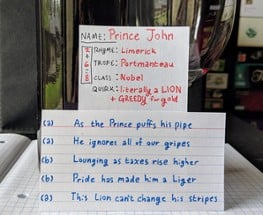 NAME: Prince John
RHYME: Limerick
TROPE: Portmanteau
CLASS: Nobel
QUIRK: literally a LION
+ GREEDY for gold
(a) As the Prince puffs his pipe
(a) He ignores all of our gripes
(b) Lounging as taxes rise higher
(b) Pride has made him a Liger
(a) This Lion can't change his stripes